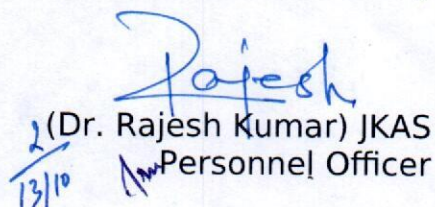 Rajesh
(Dr. Rajesh Kumar) JKAS
Personnel Officer
13/10